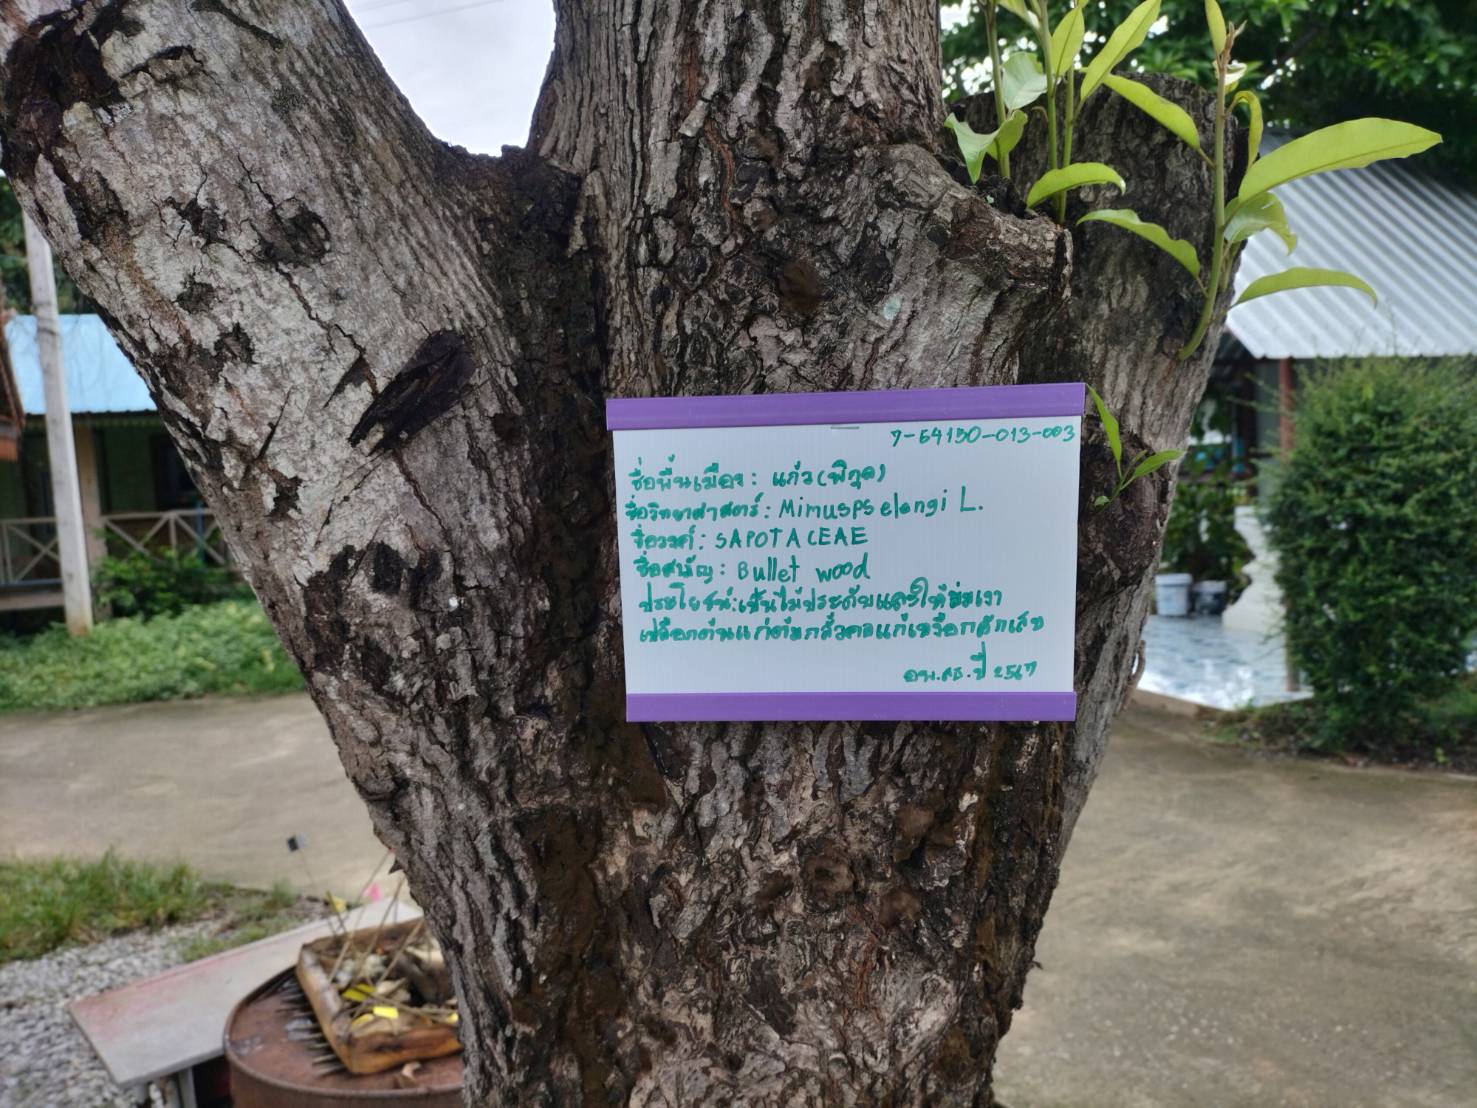 7-54130-013-003
ชื่อพื้นเมือง : แก้ว (พิกุล)
ชื่อวิทยาศาสตร์ : Mimusps elengi L.
ชื่อวงศ์ : SAPOTACEAE
ชื่อสามัญ : Bullet wood
ประโยชน์ : เป็นไม้ประดับและให้ร่มเงา
เปลือกต้นแก่ต้มกลั้วคอแก้เหงือกอักเสบ
อพ.สธ. ปี 2567